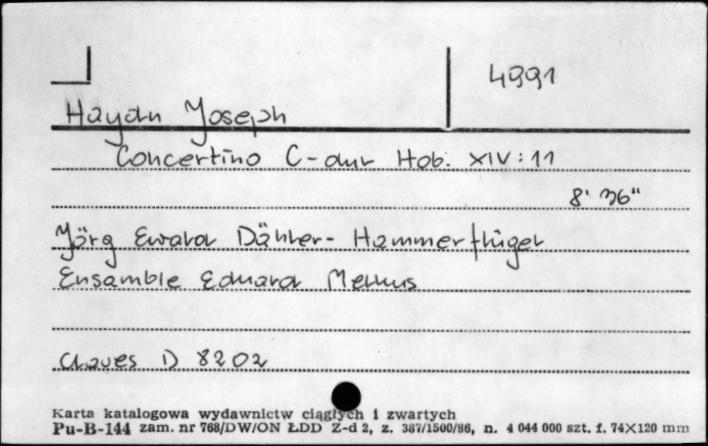 4991
Haydn Joseph
Concertino C-dur Hob. XIV:11
8' 36"
Jörg Ewald Dähler- Hammerflügel
Ensamble Eduard Melkus
Claves D 8202
Karta katalogowa wydawnictw ciągłych i zwartych
Pu-B-144 zam. nr 768/DW/ON ŁDD Z-d 2, z. 387/1500/86, n. 4 044 000 szt. f. 74X120 mm